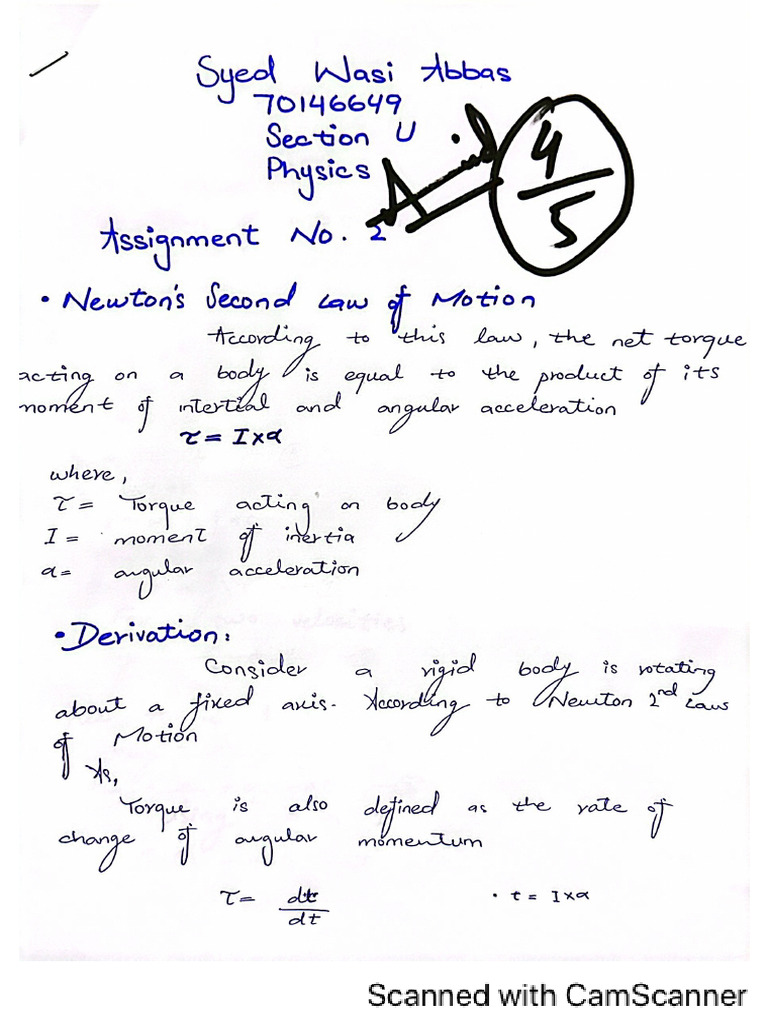 Syed Wasi Abbas
70146649
Section U
Physics
4/5
Assignment No. 2
• Newton's Second Law of Motion
According to this law, the net torque
acting on a body is equal to the product of its
moment of intertial and angular acceleration
τ = I×α
where,
τ = Torque acting on body
I = moment of inertia
α = angular acceleration
• Derivation:
Consider a rigid body is rotating
about a fixed axis. According to Newton 2nd Laws
of Motion
As,
Torque is also defined as the rate of
change of angular momentum
τ = dt/dt • t = I×α
Scanned with CamScanner